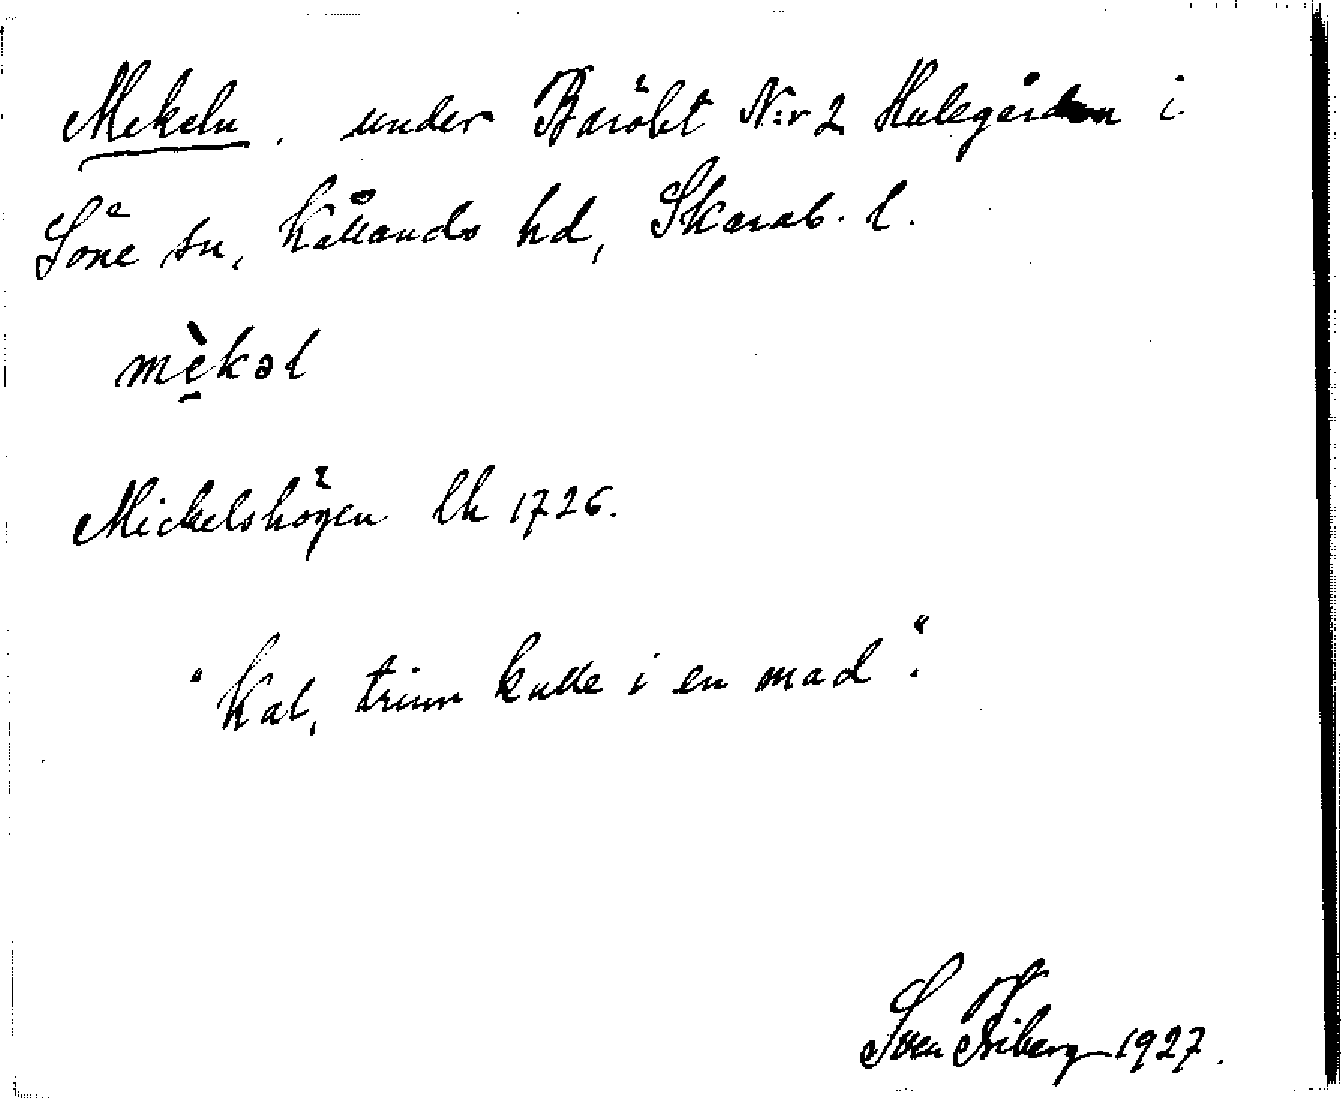 Mekeln, under Baröbt N:r 2 Hulegården i
Söne sn, Kållands hd, Skarab. l.
mè̱kəl
Mickelshögen lh 1726.
"Kal, trinn kulle i en mad".
Sven Friberg 1927.